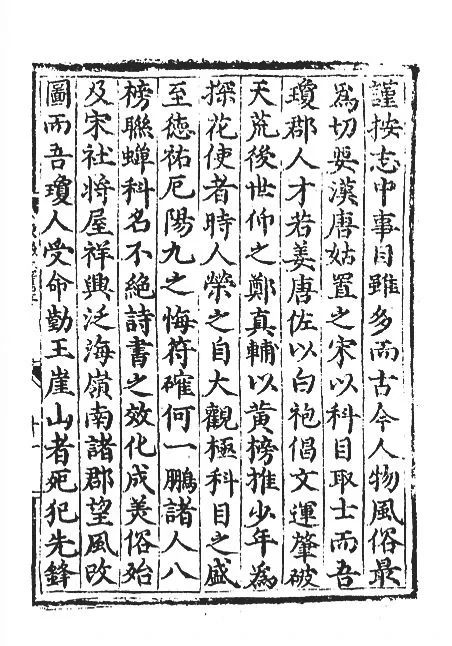 謹按志中事目雖多而古今人物風俗最
為切要漢唐姑置之宋以科目取士而吾
瓊郡人才若姜唐佐以白袍倡文運肇破
天荒後世仰之鄭真輔以黃榜推少年為
探花使者時人榮之自大觀極科目之盛
至徳祐厄陽九之悔符確何一鵬諸人八
榜聯蟬科名不絶詩書之效化成美俗始
及宋社將屋祥興泛海嶺南諸郡望風改
圖而吾瓊人受命勤王崖山者死犯先鋒